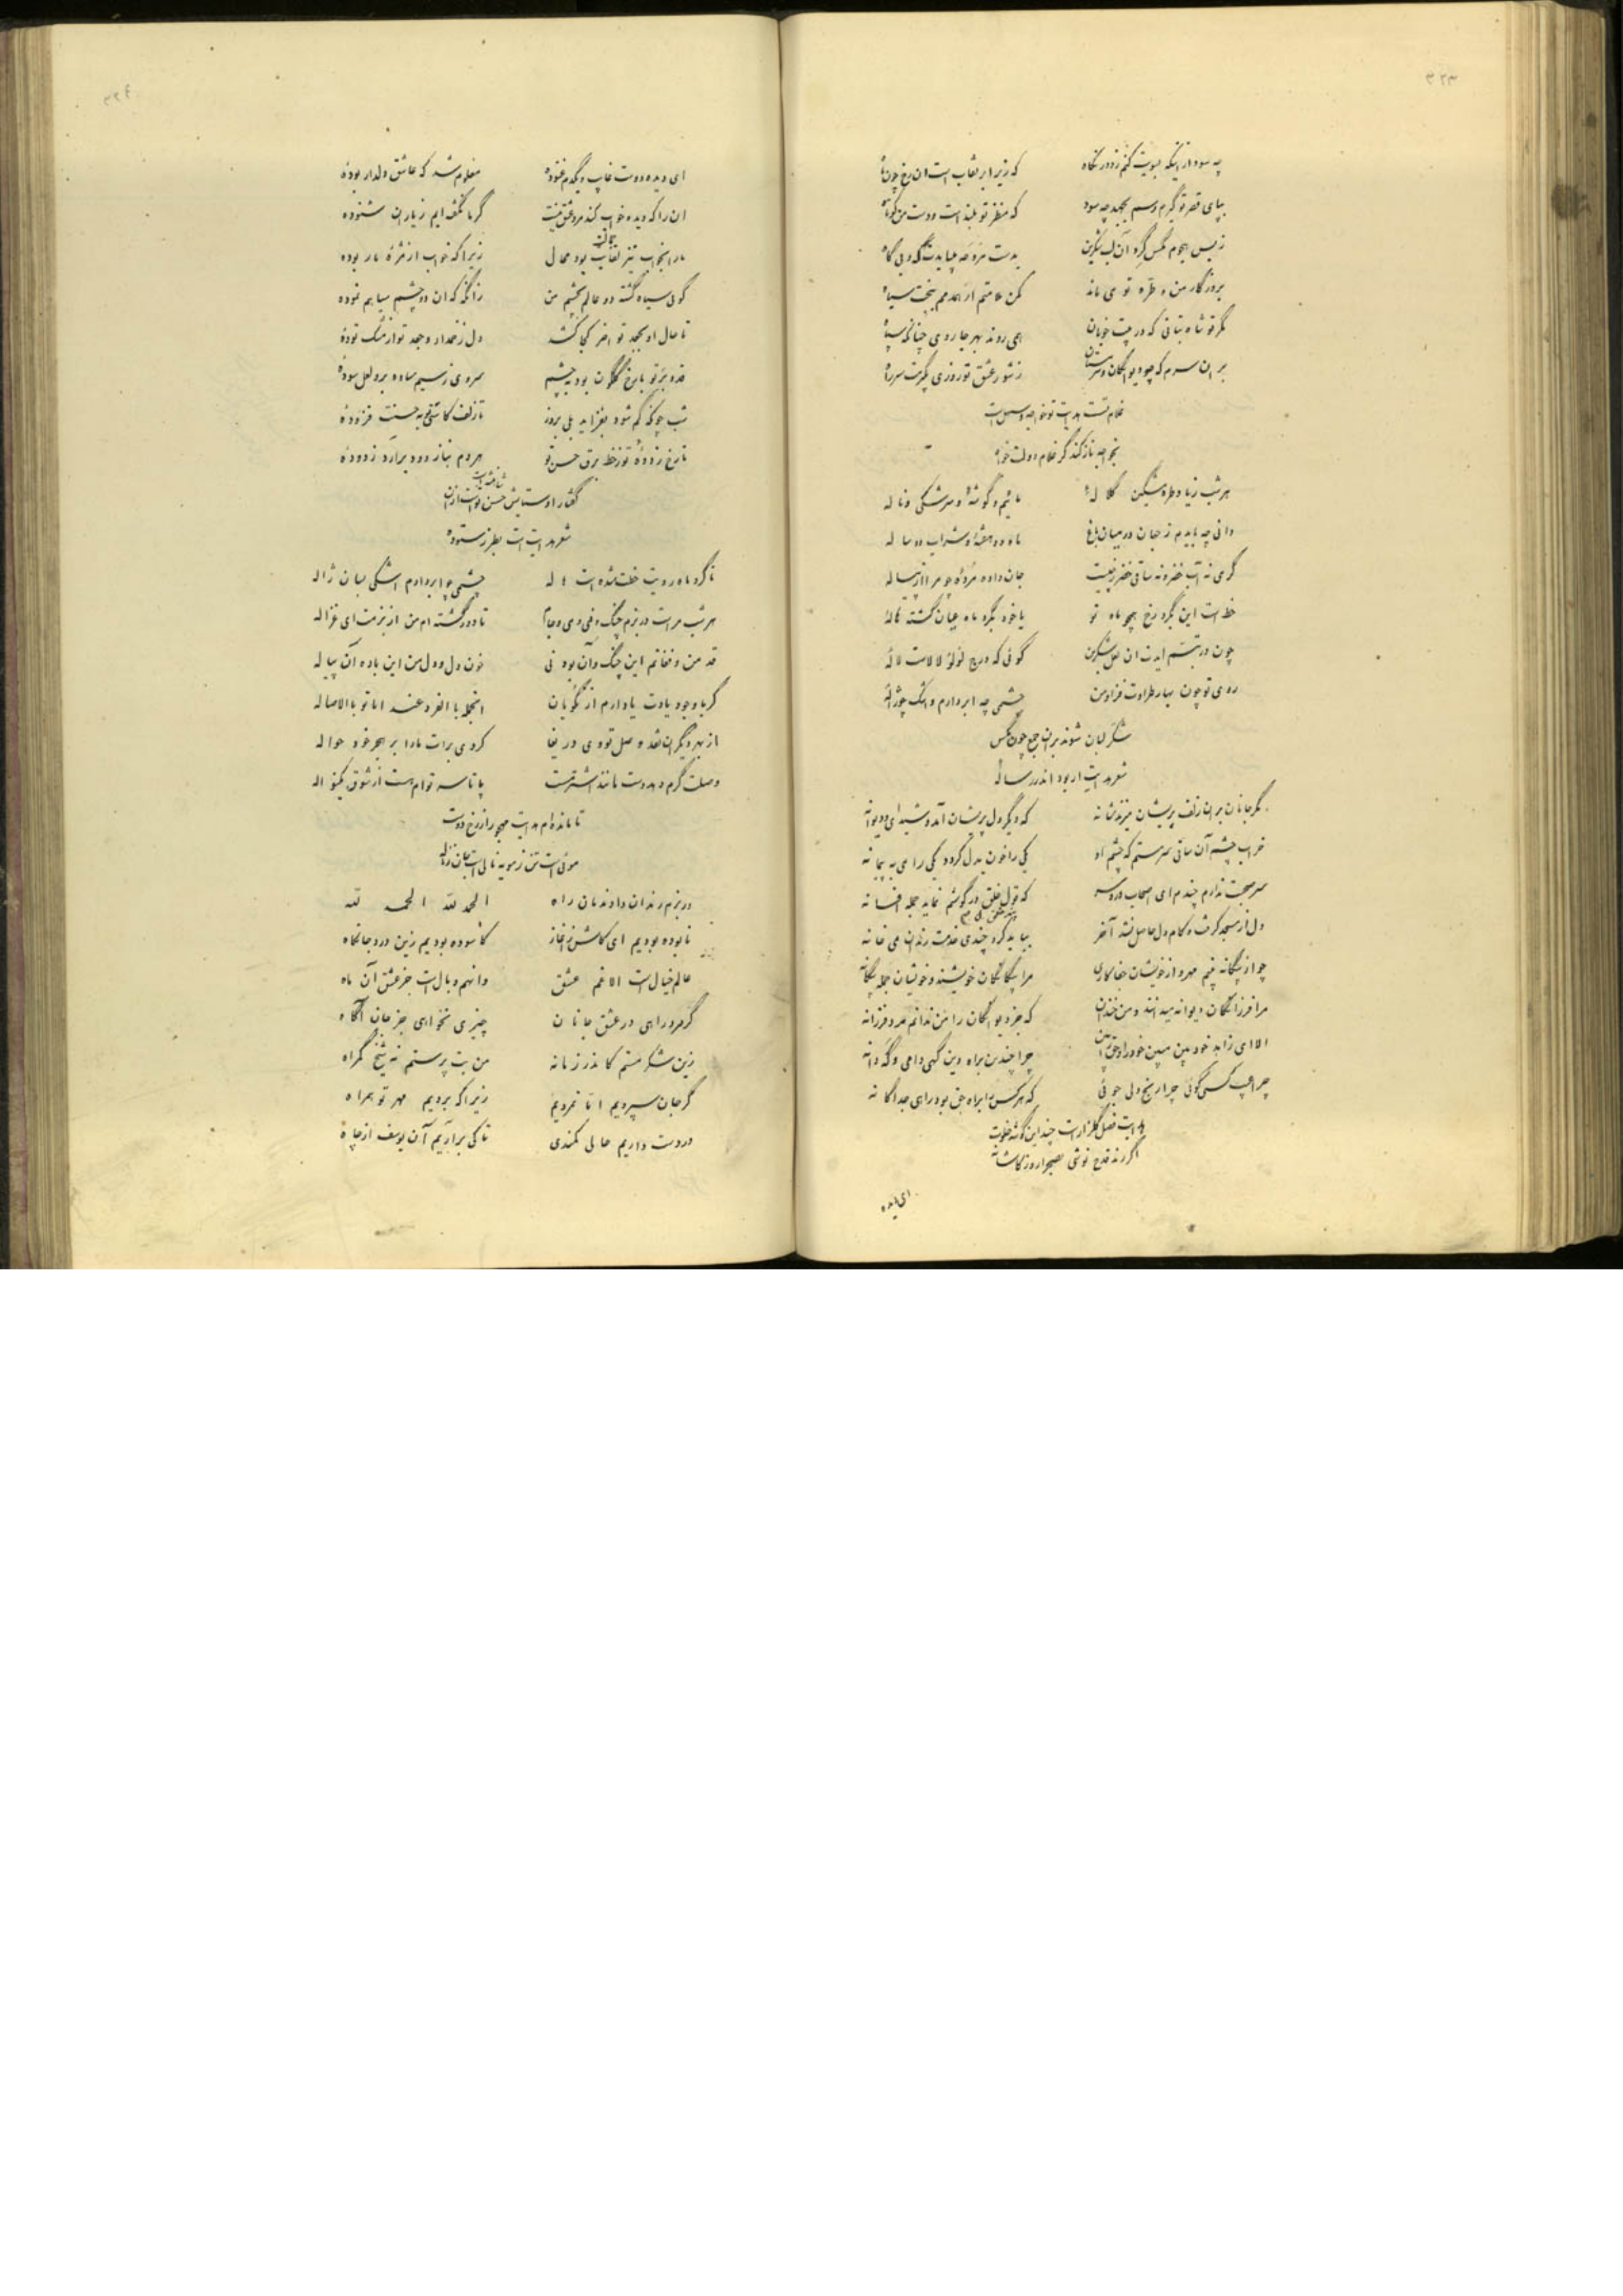 ۳۲۳
چه سود از اینکه بسویت کنم ز دور نگاه که زیر ابر نقاب است ان رخ چون ماه
بپای قصر تو گیرم رسم بجهد چه سود که منظر تو بلند است و دست من کوتاه
ز بس هجوم مگس گرد آن لب شکرین بدست مروحه میبایدت گه و بی گاه
بروزگار من و طره تو می ماند مکن ملامتم ار همدمم ببخت سیاه
مگر تو شاه بتانی که در پیت خوبان همی روند بهر جا روی چنانکه سپاه
بر ان سرم که چو دیوانگان و سرمستان ز شور عشق تو روزی بگیرمت سر راه
غلام تست هدایت تو خواجه
بخواجه ناز کند گر غلام دولت خواه
هر شب ز یاد طره مشکین کلاله مائیم و گوشه و سرشکی و ناله
دانی چه بایدم ز جهان در میان باغ ماه دو هفته و شراب دو ساله
گر می نه آب خضر و نه ساقی خضر ز چیست جان داده مرده چو مرا از پیاله
خط است این بگرد رخ همچو ماه تو یا خود بگرد ماه عیان گشته هاله
چون در تبسم ایدت ان لعل شکرین گوئی که درج لؤلؤ لالاست لاله
روی تو چون بهار طراوت فزا و من چشمی چه ابر دارم و اشک چو ژاله
شکر لبان شوند بر ان جمع چون مگس
شعر هدایت ار بود اندر رساله
مگر جانان بر ان زلف پریشان میزند شانه که دیگر دل پریشان آمد و شیدای و دیوانه
خراب چشم آن ساقی سرمستم که چشم او یکی را خون بدل کرد و یکی را می به پیمانه
سر صحبت ندارم چندم ای اصحاب مدرسه که قول خلق در گوشم نماید جمله افسانه
دل از مسجد گرفت و کام دل حاصل نشد آخر بباید کرد چندی خدمت رندان می خانه
چو از بیگانه بینم مهر و از خویشان جفاکاری مرا بیگانگان خویشند و خویشان جمله بیگانه
مرا فرزانگان دیوانه میدانند و من خندان که جز دیوانگان را من ندانم مرد فرزانه
الا ای زاهد خود بین مبین خود را و حق را بین چرا چندین براه دین گهی دامی و گه دانه
چرا عیب کسی گوئی چرا رنج دلی جوئی که هر کس را براه حق بود راهی جداگانه
هدایت فصل گلزار است چند این گوشه خلوت
اگر رند قدح نوشی بصحرا رو ز کاشانه
ای دیده
۳۲۴
ای دیده دوست غایب و یکدم غنوده معلوم شد که عاشق دلدار بوده
ان را که دیده خواب کند مرد عشق نیست گر ما نگفته ایم ز یاران شنوده
ما را بخواب نیز لقایت بود محال زیرا که خواب از مژه ما ربوده
گوئی سیاه گشته دو عالم بچشم من زانگه که ان دو چشم سیاهم نموده
تا حال او بجعد تو اخر کجا کشد دل زخمدار و جعد تو از مشک توده
قد و بر تو با رخ گلگون بود بچشم سروی ز سیم ساده برو لعل سوده
شب چونکه کم شود بفزاید بلی بروز تا زلف کاستی و بحسنت فزوده
تا رخ زدوده تو ز خط برق حسن تو هر دم بناز دود برآرد ز دوده
گفتار او ستایش حسن تو است از ان
شعر هدایت است بطرز ستوده
تا گرد ماه رویت خطت شده است هاله چشمی چو ابر دارم اشکی بسان ژاله
هر شب مراست در بزم چنگ و نی و می و جام تا دور گشته ام من از بزمت ای غزاله
قد من و فغانم این چنگ و آن بود نی خون دل و دل من این باده آن پیاله
گر با وجود یادت یاد ارم از نکویان
از بهر دیگران نقد وصل تو وی دریغا کردی برات ما را بر هجر خود حواله
وصلت گرم دهد دست مانند اشتر مست پا تا سر توام هست از شوق یک نواله
تا مانده ام هدایت مهجور از رخ دوست
موئی است تن ز مویه نالی است جان ز ناله
در بزم رندان دادند مان راه الحمد لله الحمد لله
نابوده بودیم ای کاش ز آغاز کاسوده بودیم زین درد جانکاه
عالم خیال است الا غم عشق وانهم وبال است جز عشق آن ماه
گر مرد راهی در عشق جانان چیزی نخواهی جز جان آگاه
زین شکر مستم کاندر زمانه من بت پرستم نه شیخ گمراه
گر جان سپردیم اما نمردیم زیرا که بردیم مهر تو همراه
در دست داریم حالی کمندی تا کی برآریم آن یوسف از چاه